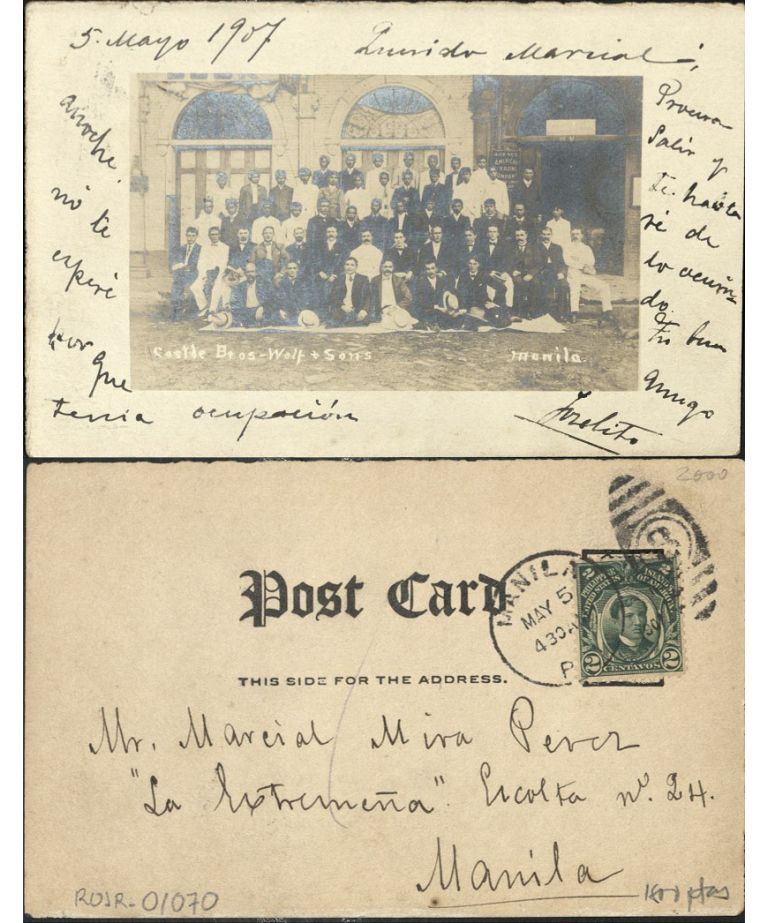 5. Mayo 1907 Querido Marcial;
anoche
no te
esperé
por que
tenia ocupación
Procura
Salir y
te hablaré
de
lo ocurrido.
Tu buen
amigo
Joselito
AMERICAN
Castle Bros-Wolf + Sons Manila
2000
Post Card
THIS SIDE FOR THE ADDRESS.
MANILA
MAY 5
430A
P.
PHILIPPINE ISLANDS
UNITED STATES OF AMERICA
2 CENTAVOS 2
Mr. Marcial Mira Perez
"La Extremeña". Escolta nº. 24.
Manila
ROJR-01070
ptas